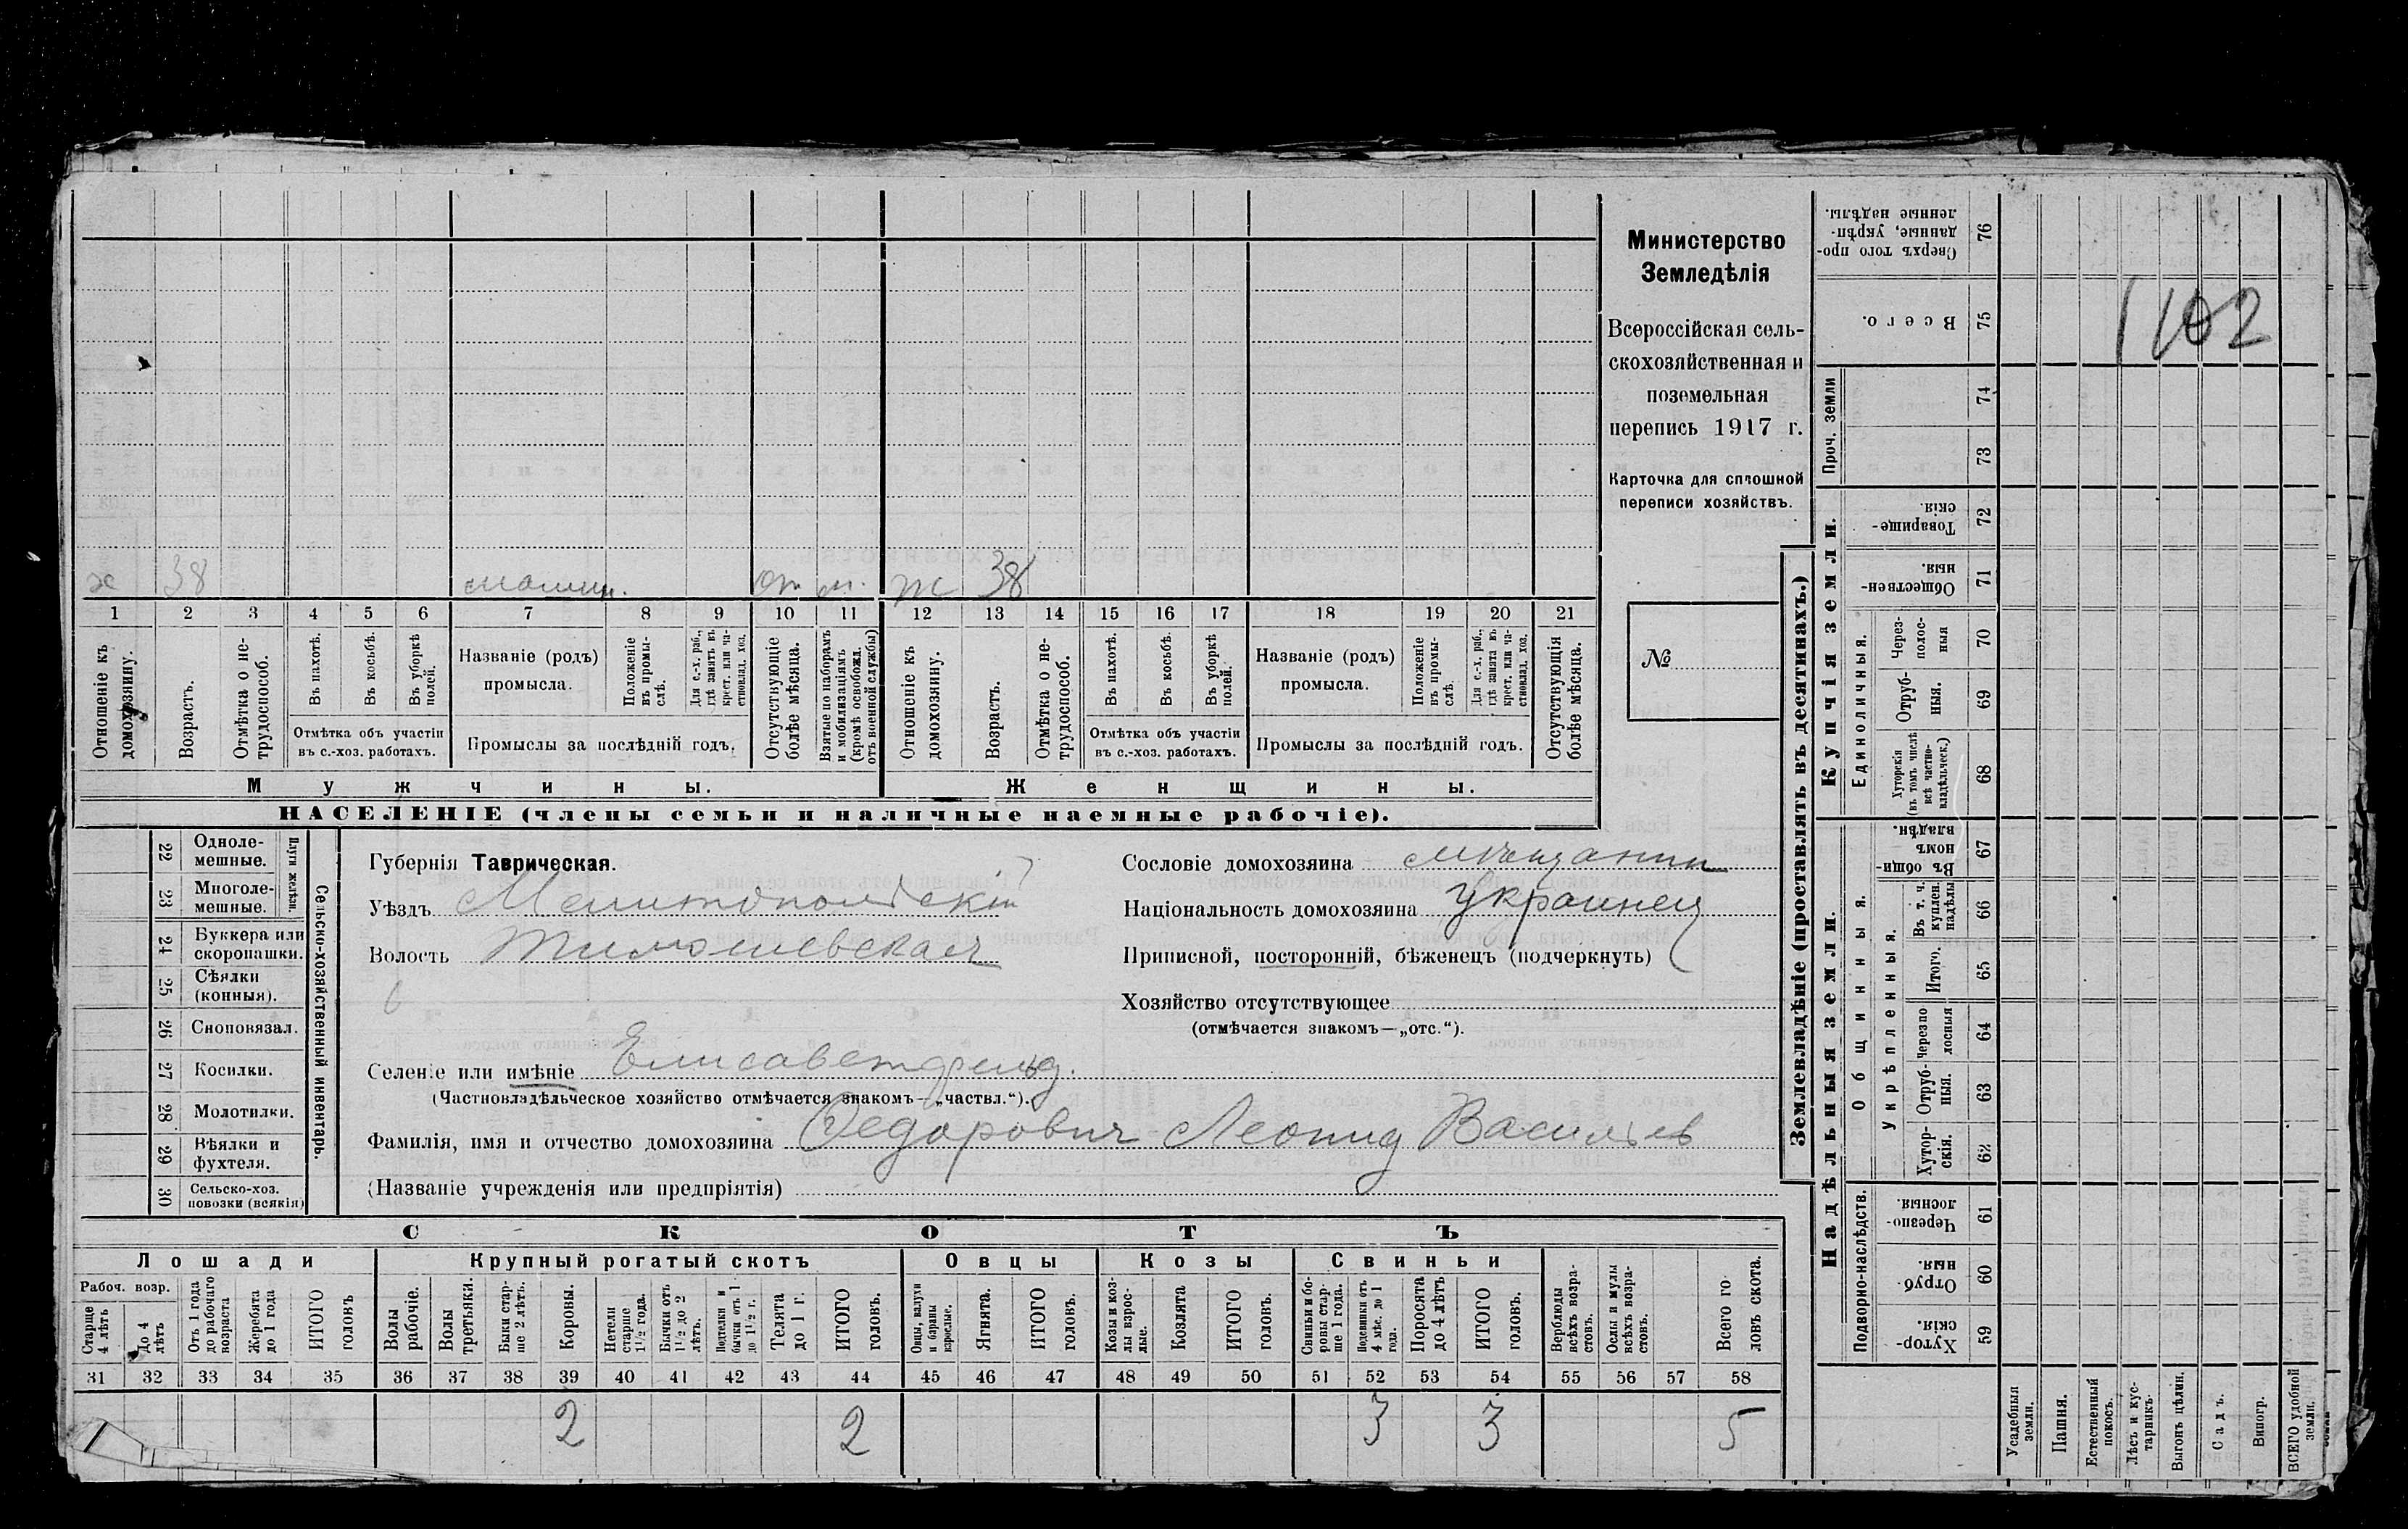 Министерство
Земледѣлія
Всероссійская сель-
скохозяйственная и
поземельная
перепись 1917 г.
Карточка для сплошной
переписи хозяйствъ.
№
х 38 машин. от м. ж 38
1 2 3 4 5 6 7 8 9 10 11 12 13 14 15 16 17 18 19 20 21
Отношеніе къ домохозяину.
Возрастъ.
Отмѣтка о не-трудоспособ.
Въ пахотѣ.
Въ косьбѣ.
Въ уборкѣ полей.
Отмѣтка объ участіи
въ с.-хоз. работахъ.
Названіе (родъ)
промысла.
Положеніе въ промы-слѣ.
Для с.-х. раб., гдѣ занятъ въ крест. или ча-стновлад. хоз.
Промыслы за послѣдній годъ.
Отсутствующіе болѣе мѣсяца.
Взятые по наборамъ и мобилизаціямъ (кромѣ освобожд. отъ военной службы)
Отношеніе къ домохозяину.
Возрастъ.
Отмѣтка о не-трудоспособ.
Въ пахотѣ.
Въ косьбѣ.
Въ уборкѣ полей.
Отмѣтка объ участіи
въ с.-хоз. работахъ.
Названіе (родъ)
промысла.
Положеніе въ промы-слѣ
Для с.-х. раб., гдѣ занята въ крест. или ча-стновлад. хоз.
Промыслы за послѣдній годъ.
Отсутствующія болѣе мѣсяца.
Мужчины. Женщины.
НАСЕЛЕНІЕ (члены семьи и наличные наемные рабочіе).
Сельско-хозяйственный инвентарь.
Плуги желѣзн.
22 Одноле-мешные.
23 Многоле-мешные.
24 Буккера или скоропашки.
25 Сѣялки (конныя).
26 Сноповязал.
27 Косилки.
28 Молотилки.
29 Вѣялки и фухтеля.
30 Сельско-хоз. повозки (всякія)
Губернія Таврическая.
Уѣздъ Мелитопольскій
Волость Тимошевская
Сословіе домохозяина мѣщанин
Національность домохозяина Украинец
Приписной, посторонній, бѣженецъ (подчеркнуть)
Хозяйство отсутствующее
(отмѣчается знакомъ—„отс.“).
Селеніе или имѣніе Елисаветфельд.
(Частновладѣльческое хозяйство отмѣчается знакомъ—„частвл.“).
Фамилія, имя и отчество домохозяина Федорович Леонид Васильев
(Названіе учрежденія или предпріятія)
СКОТЪ
Лошади Крупный рогатый скотъ Овцы Козы Свиньи
Рабоч. возр.
Старше 4 лѣтъ
До 4 лѣтъ
Отъ 1 года до рабочаго возраста
Жеребята до 1 года
ИТОГО головъ
Волы рабочіе.
Волы третьяки.
Быки стар-ше 2 лѣтъ.
Коровы.
Нетели старше 1½ года.
Бычки отъ 1½ до 2 лѣтъ.
Подтелки и бычки отъ 1 до 1½ г.
Телята до 1 г.
ИТОГО головъ.
Овцы, валухи и бараны взрослые.
Ягнята.
ИТОГО головъ.
Козы и коз-лы взрос-лые.
Козлята
ИТОГО головъ.
Свиньи и бо-ровы стар-ше 1 года.
Подсвинки отъ 4 мѣс. до 1 года.
Поросята до 4 лѣтъ
ИТОГО головъ.
Верблюды всѣхъ возра-стовъ.
Ослы и мулы всѣхъ возра-стовъ.
Всего го-ловъ скота.
31 32 33 34 35 36 37 38 39 40 41 42 43 44 45 46 47 48 49 50 51 52 53 54 55 56 57 58
2 2 3 3 5
Землевладѣніе (проставлять въ десятинахъ.)
Надѣльныя земли. Купчія земли. Проч. земли
Подворно-наслѣдств.
Общинныя.
Укрѣпленныя.
Единоличныя.
59 Хутор-скія.
60 Отруб-ныя.
61 Черезпо-лосныя.
62 Хутор-скія.
63 Отруб-ныя.
64 Черезпо-лосныя
65 Итого.
66 Въ т. ч. куплен. надѣлы
67 Въ общи-номъ владѣн.
68 Хуторскія (въ томъ числѣ всѣ частно-владѣльческ.)
69 Отруб-ныя.
70 Через-полос-ныя
71 Обществен-ныя.
72 Товарище-скія.
73
74
75 Всего.
76 Сверхъ того про-данные, укрѣп-ленные надѣлы.
102
Усадебныя земли.
Пашня.
Естественный покосъ.
Лѣсъ и кус-тарникъ.
Выгонъ цѣлин.
Садъ.
Виногр.
ВСЕГО удобной земли.